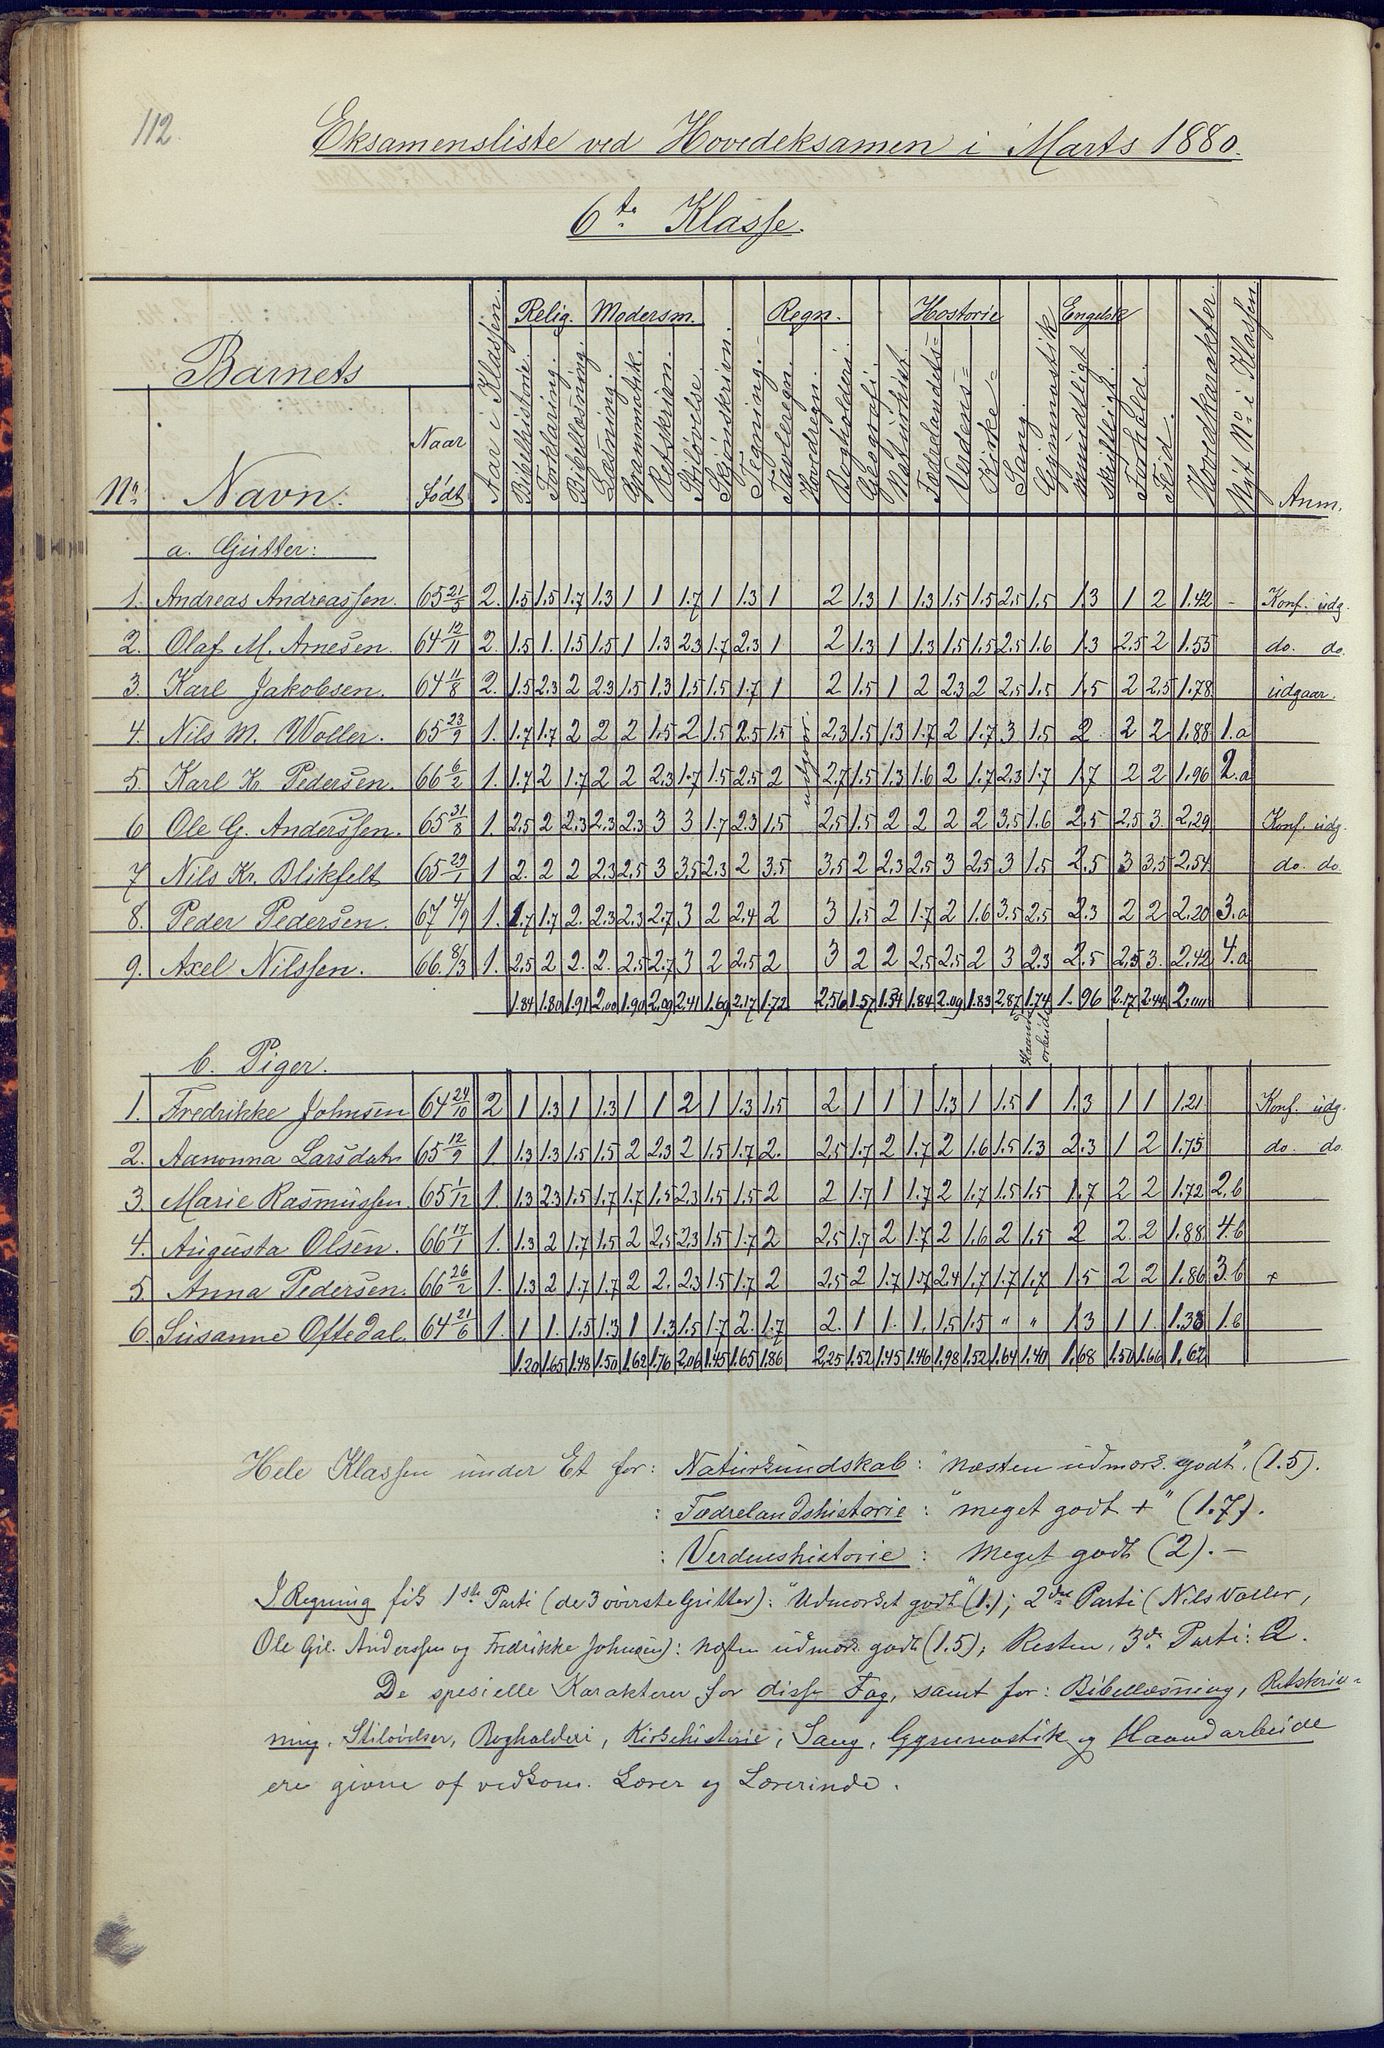 112.
Eksamensliste ved Hovedeksamen i Marts 1880.
6te Klasse.
Barnets
No. Navn. Naar Født Aar i Klassen. Relig. Bibelhistorie. Forklaring. Bibellæsning. Modersm. Læsning. Grammatik. Retskrivn. Stiløvelse. Skjønskrivn. Tegning. Regn. Tavleregn. Hovedregn. Bogholderi. Geografi. Naturhist. Hostorie Fædrelandets= Verdens= Kirke= Sang. Gymnastik Engelsk mundtligt skriftligt. Forhold. Flid. Hovedkarakter. Nyt No. i Klassen. Anm.
a. Gutter:
1. Andreas Andreassen. 65 21/5 2. 1.5 1.5 1.7 1.3 1 1 1.7 1 1.3 1 2 1.3 1 1.3 1.5 1.5 2.5 1.5 1.3 1 2 1.42 - Konf. udg.
2. Olaf M. Arnesen. 64 12/11 2. 1.5 1. 1.5 1.5 1 1.3 2.3 1.7 2.3 1 2 1.3 1 1.3 1.5 1.5 2.5 1.6 1.3 2.5 2 1.53 do. do.
3. Karl Jakobsen. 64 11/8 2. 1.5 2.3 2 2.3 1.5 1.3 1.5 1.5 1.7 1 2 1.5 1 2 2.3 2 2.5 1.5 1.5 2 2.5 1.78 udgaar.
4. Nils M. Woller. 65 23/9 1. 1.7 1.7 2 2 2 1.5 2 1.5 2.5 1.5 2.3 1.5 1.3 1.7 2 1.7 3 1.5 2 2 2 1.88 1.a
5. Karl Kr. Pedersen. 66 6/2 1. 1.7 2 1.7 2 2 2.3 1.7 1.5 2.5 2 2.7 1.5 1.3 1.6 2 1.7 2.3 1.7 1.7 2 2 1.90 2.a
6 Ole G. Anderssen. 65 31/8 1. 2.5 2 2.3 2.3 2.3 3 3 1.7 2.3 1.5 2.5 1.5 2 2 2 2 3.5 1.6 2.5 2.5 3. 2.29 Konf. udg.
7 Nils Kr. Blikfelt 65 29/1 1 2. 2 2 2.3 2.5 3 3.5 2.3 2 3.5 3.5 2 2.3 2.5 3 2.5 3 1.5 2.5 3 3.5 2.54 do. do.
8. Peder Pedersen. 67 4/9 1. 1.7 1.7 2. 2.3 2.3 2.7 3 2 2.4 2 3 1.5 2 1.7 2 1.6 3.5 2.5 2.3 2 2 2.20 3.a
9. Axel Nilssen. 66. 8/3 1. 2.5 2 2. 2. 2.5 2.7 3 2 2.5 2 3 2 2 2.5 2.5 2 3 2.3 2.5 2.5 3. 2.42 4.a
1.84 1.80 1.91 2.00 1.90 2.09 2.41 1.69 2.17 1.72 2.56 1.57 1.54 1.84 2.09 1.83 2.87 1.74 1.96 2.17 2.44
Haandarbeide
b. Piger.
1. Fredrikke Johnsen 64 24/10 2 1 1.3 1 1.3 1 1 2 1 1.3 1.5 2 1 1 1 1.3 1 1.5 1 1.3 1 1 1.21 Konf. udg.
2. Aanonna Larsdatr 65 12/9 1. 1.3 1.3 1.5 1.5 2 2.3 2 1.5 1.7 2. 2.5 1.7 2 1.7 2 1.6 1.5 1.3 2.3 1 2 1.75 do. do
3. Marie Rasmussen. 65 1/12 1. 1.3 2.3 1.5 1.7 1.7 1.5 2.3 1.5 1.5 2 2 1.7 1 1.7 2 1.7 1.5 1.5 1.7 2 2 1.72 2.b
4. Augusta Olsen. 66 17/1 1. 1.3 2 1.7 1.5 2 2.5 2.3 1.5 1.7 2 2.5 1.7 2 1.7 2 1.6 2 1.5 2 2. 2 1.88 4.b
5. Anna Pedersen. 66 26/2 1. 1.3 2 1.7 1.7 2 2. 2.3 1.5 1.7 2 2.5 2 1.7 1.7 2.4 1.7 1.7 1.7 1.5 2 2 1.86 3.b +
6. Susanne Oftedal. 64 21/6 1. 1 1. 1.5 1.3 1 1.3 1.5 1.7 2. 1.7 2. 1 1. 1. 1.5 1.5 " " 1.3 1 1. 1.33 1.b
1.20 1.65 1.48 1.50 1.62 1.76 2.06 1.45 1.65 1.86 2.25 1.52 1.45 1.46 1.98 1.52 1.64 1.40 1.68 1.50 1.66 1.62
Hele Klassen under Et for: Naturkundskab: "næsten udmærk. godt". (1.5).
: Fædrelandshistorie: "meget godt +" (1.7).
: Verdenshistorie: Meget godt (2). —
I Regning fik 1ste Parti (de 3 øverste Gutter): "Udmærket godt" (1.); 2det Parti (Nils Woller,
Ole Gil. Anderssen og Fredrikke Johnsen): næsten udmærk. godt (1.5); Resten, 3de Parti: 2.
De spesielle Karakterer for disse Fag, samt for: Bibellæsning, Retskriv=
ning, Stiløvelser, Bogholderi, Kirkehistorie, Sang, Gymnastik og Haandarbeide
ere givne af vedkom. Lærer og Lærerinde.